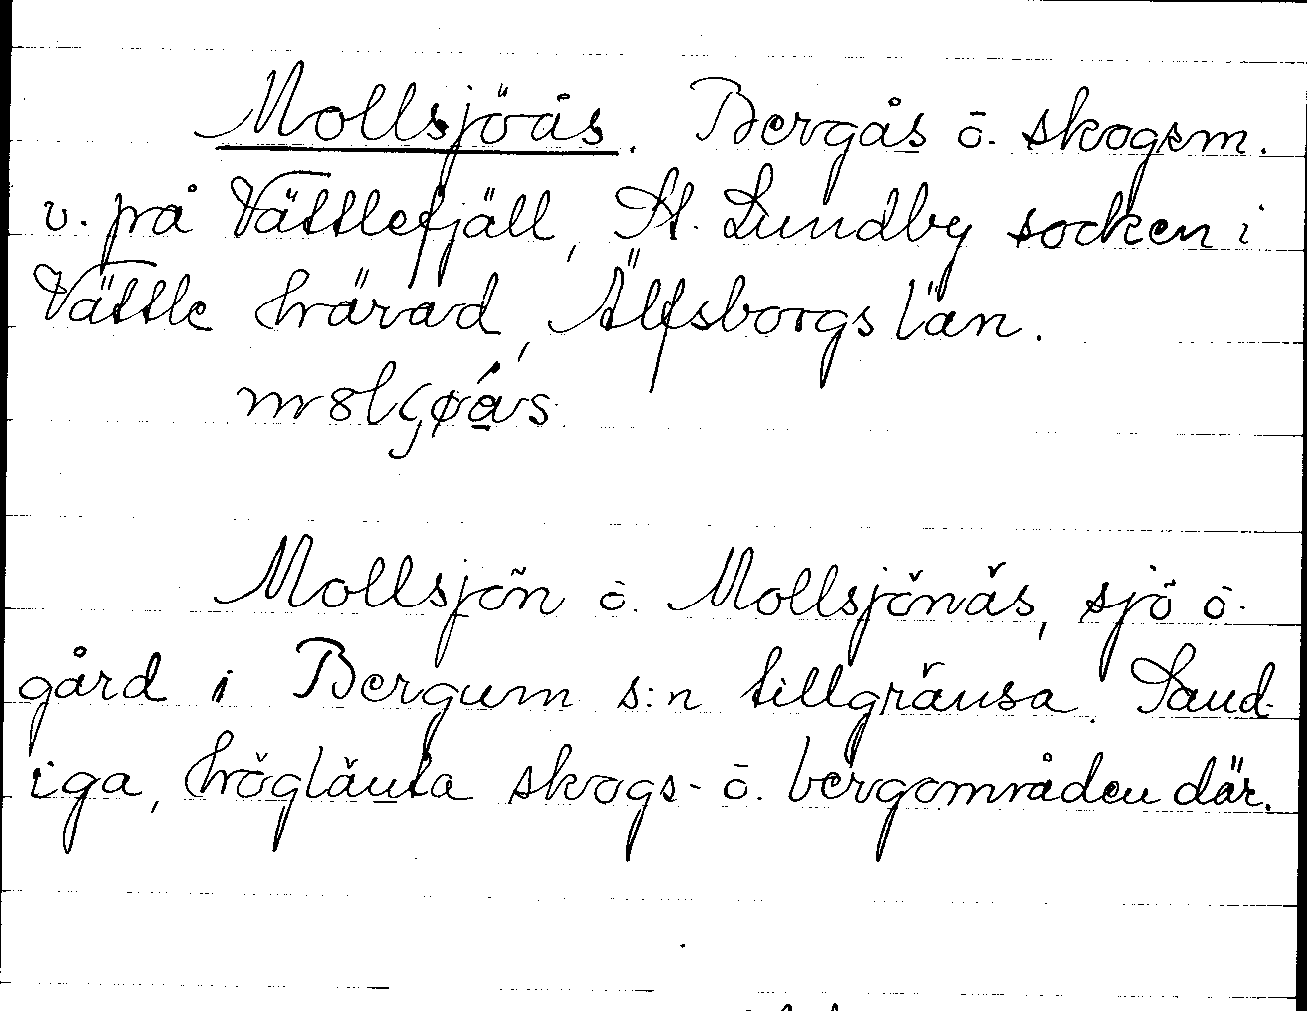 Mollsjöås. Bergås ō. skogsm.
v. på Vättlefjäll, St. Lundby socken i
Vättle härad, Älfsborgs län.
Mollsjön ō. Mollsjönäs, sjö ō.
gård i Bergum s:n tillgränsa. Sand-
iga, höglänta skogs- ō. bergområden där.